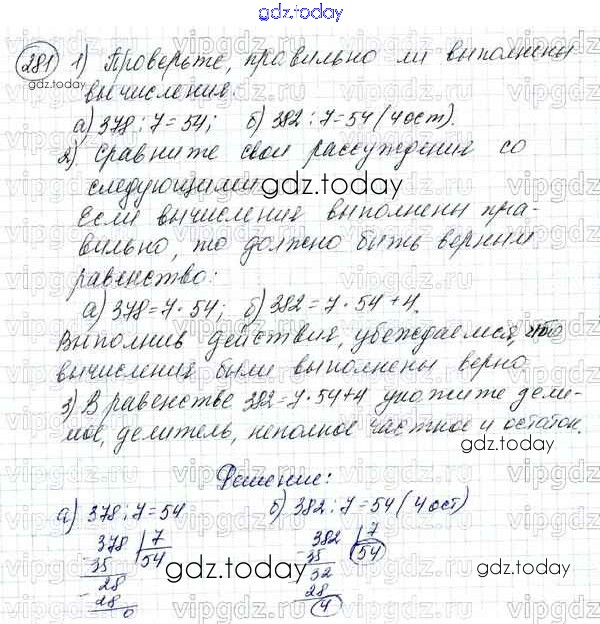 gdz.today
281 1) Проверьте, правильно ли выполнены
вычисления:
gdz.today
а) 378 : 7 = 54; б) 382 : 7 = 54 (4 ост).
2) Сравните свои рассуждения со
следующими
gdz.today
Если вычисления выполнены пра-
вильно, то должно быть верным
равенство:
а) 378 = 7 · 54; б) 382 = 7 · 54 + 4.
Выполнив действия, убеждаемся, что
вычисления были выполнены верно.
3) В равенстве 382 = 7 · 54 + 4 укажите дели-
мое, делитель, неполное частное и остаток.
gdz.today
Решение:
а) 378 : 7 = 54 б) 382 : 7 = 54 (4 ост)
378 7 382 7
35 54 35 54
gdz.today
28 32
28 28
0 4